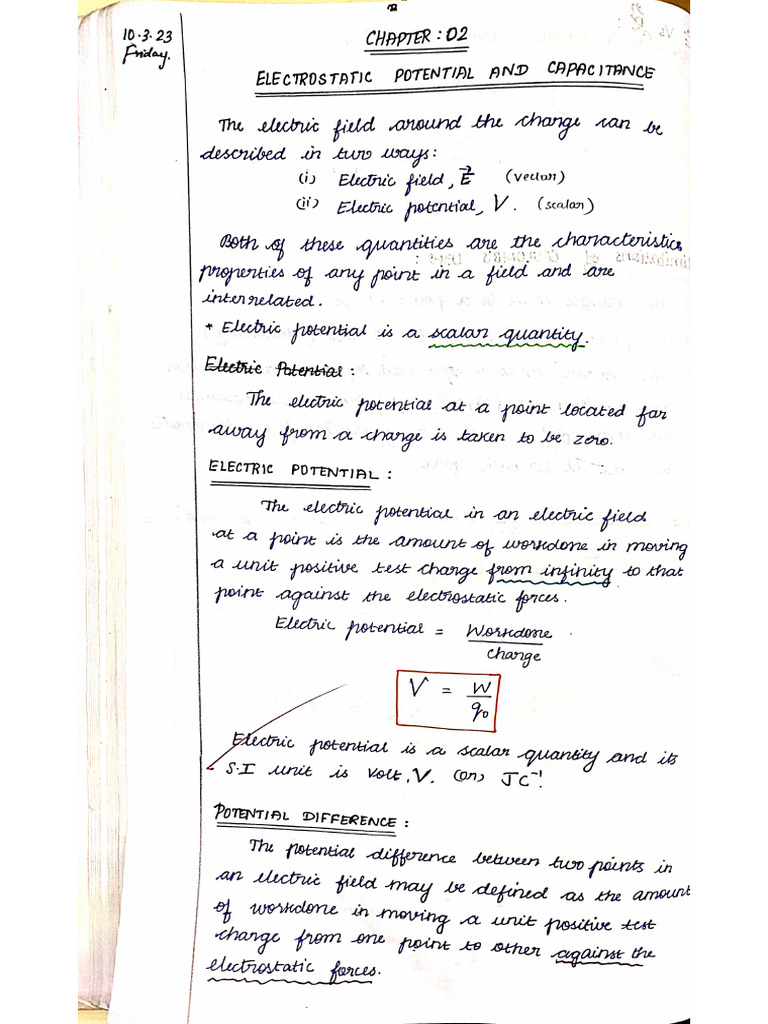 10.3.23
Friday.
CHAPTER : 02
ELECTROSTATIC POTENTIAL AND CAPACITANCE
The electric field around the charge can be
described in two ways:
(i) Electric field, E⃗ (vector)
(ii) Electric potential, V. (scalar)
Both of these quantities are the characteristics
properties of any point in a field and are
interrelated.
* Electric potential is a scalar quantity.
Electric Potential :
The electric potential at a point located far
away from a charge is taken to be zero.
ELECTRIC POTENTIAL :
The electric potential in an electric field
at a point is the amount of workdone in moving
a unit positive test charge from infinity to that
point against the electrostatic forces.
Electric potential = Workdone
charge
V = W
q₀
Electric potential is a scalar quantity and its
S.I unit is volt, V. (or) JC⁻¹.
POTENTIAL DIFFERENCE :
The potential difference between two points in
an electric field may be defined as the amount
of workdone in moving a unit positive test
charge from one point to other against the
electrostatic forces.